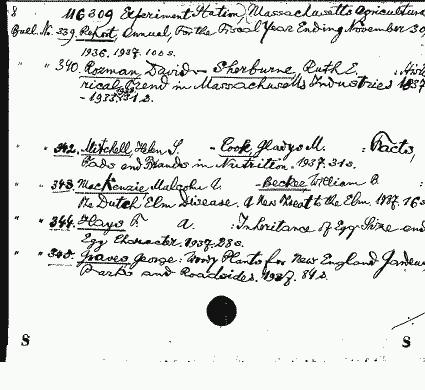 8 116309 Experiment Station, Massachusetts Agricultural
Bull. No. 339. Report, Annual, For the Fiscal Year Ending November 30,
1936. 1937. 100 s.
" " 340. Rozman, David - Sherburne, Ruth E. : Histo
rical Trend in Massachusetts Industries 1837
- 1933. 31 s.
" " 342. Mitchell, Helen S. - Cook, Gladys M. : Facts,
Fads and Frauds in Nutrition. 1937. 31 s.
" " 343. MacKenzie, Malcolm A. - Becker, William B. :
The Dutch Elm Disease. A New Threat to the Elm. 1937. 16 s.
" " 344. Hays, F. A. : Inheritance of Egg Size and
Egg Character. 1937. 28 s.
" " 345. Graves, George: Woody Plants for New England Gardens,
Parks and Roadsides. 1937. 84 s.
S S